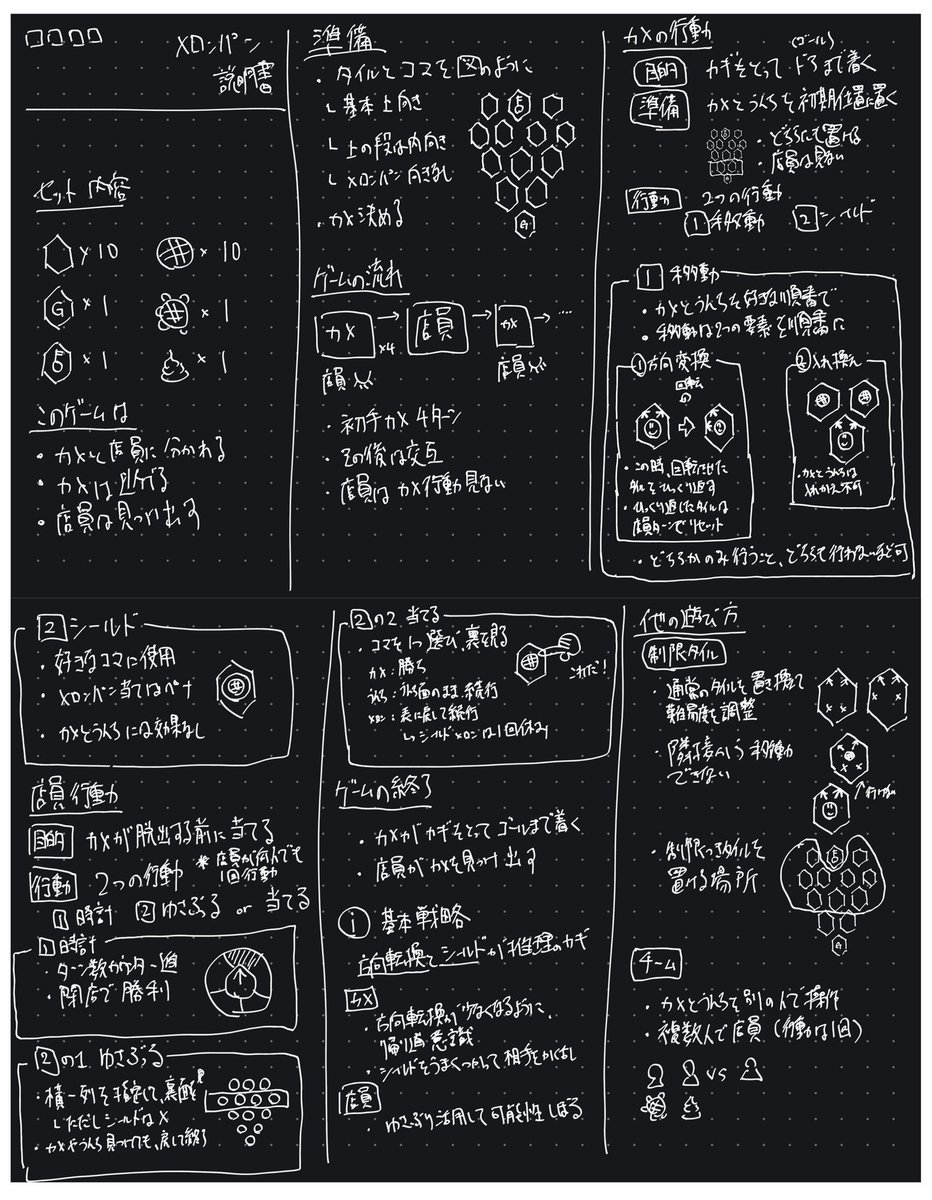 メロンパン
説明書
セット内容
×10
×10
G ×1
×1
店 ×1
×1
このゲームは
・カメと店員に分かれる
・カメは逃げる
・店員は見つけ出す
準備
・タイルとコマを図のように
└基本上向き
└上の段は内向き
└メロンパン向きなし
・カメ決める
店
G
ゲームの流れ
カメ×4→店員→カメ→…
店員
店員
・初手カメ4ターン
・その後は交互
・店員はカメ行動見ない
カメの行動
(ゴール)
目的 カギをとってドアまで着く
準備 カメとうんちを初期位置に置く
・どちらにでも置ける
・店員は見ない
行動 2つの行動
1移動 2シールド
1 移動
・カメとうんちを好きな順番で
・移動は2つの要素を順番に
①方向変換
回転
・この時、回転させた
タイルをひっくり返す
・ひっくり返したタイルは
店員ターンでリセット
②入れ換え
・カメとうんちは
入れかえ不可
・どちらかのみ行うこと、どちらも行わないなど可
2シールド
・好きなコマに使用
・メロンパン当てはペナ
・カメとうんちには効果なし
店員行動
目的 カメが脱出する前に当てる
行動 2つの行動
*店員が何人でも
1回行動
1時計 2ゆさぶる or 当てる
1時計
・ターン数が
・閉店で勝利
2の1 ゆさぶる
・横一列を指定して、裏確認
└ただしシールドは×
・カメやうんち見つけても、戻して終了
2の2 当てる
・コマを1つ選び、裏を見る
カメ：勝ち
うんち：うんち面のまま、続行
メロン：表に戻して続行
└シールドメロンは1回休み
これだ！
ゲームの終了
・カメがカギをとってゴールまで着く
・店員がカメを見つけ出す
i 基本戦略
方向転換とシールドが推理のカギ
カメ
・方向転換が少なくなるように、
帰り道意識
・シールドをうまくつかって相手をかくらん
店員
・ゆさぶり活用して可能性しぼる
他の遊び方
制限タイル
・通常のタイルを置き換えて
難易度を調整
・隣接から移動
できない
・制限つきタイルを
置ける場所
チーム
・カメとうんちを別の人で操作
・複数人で店員(行動は1回)
vs